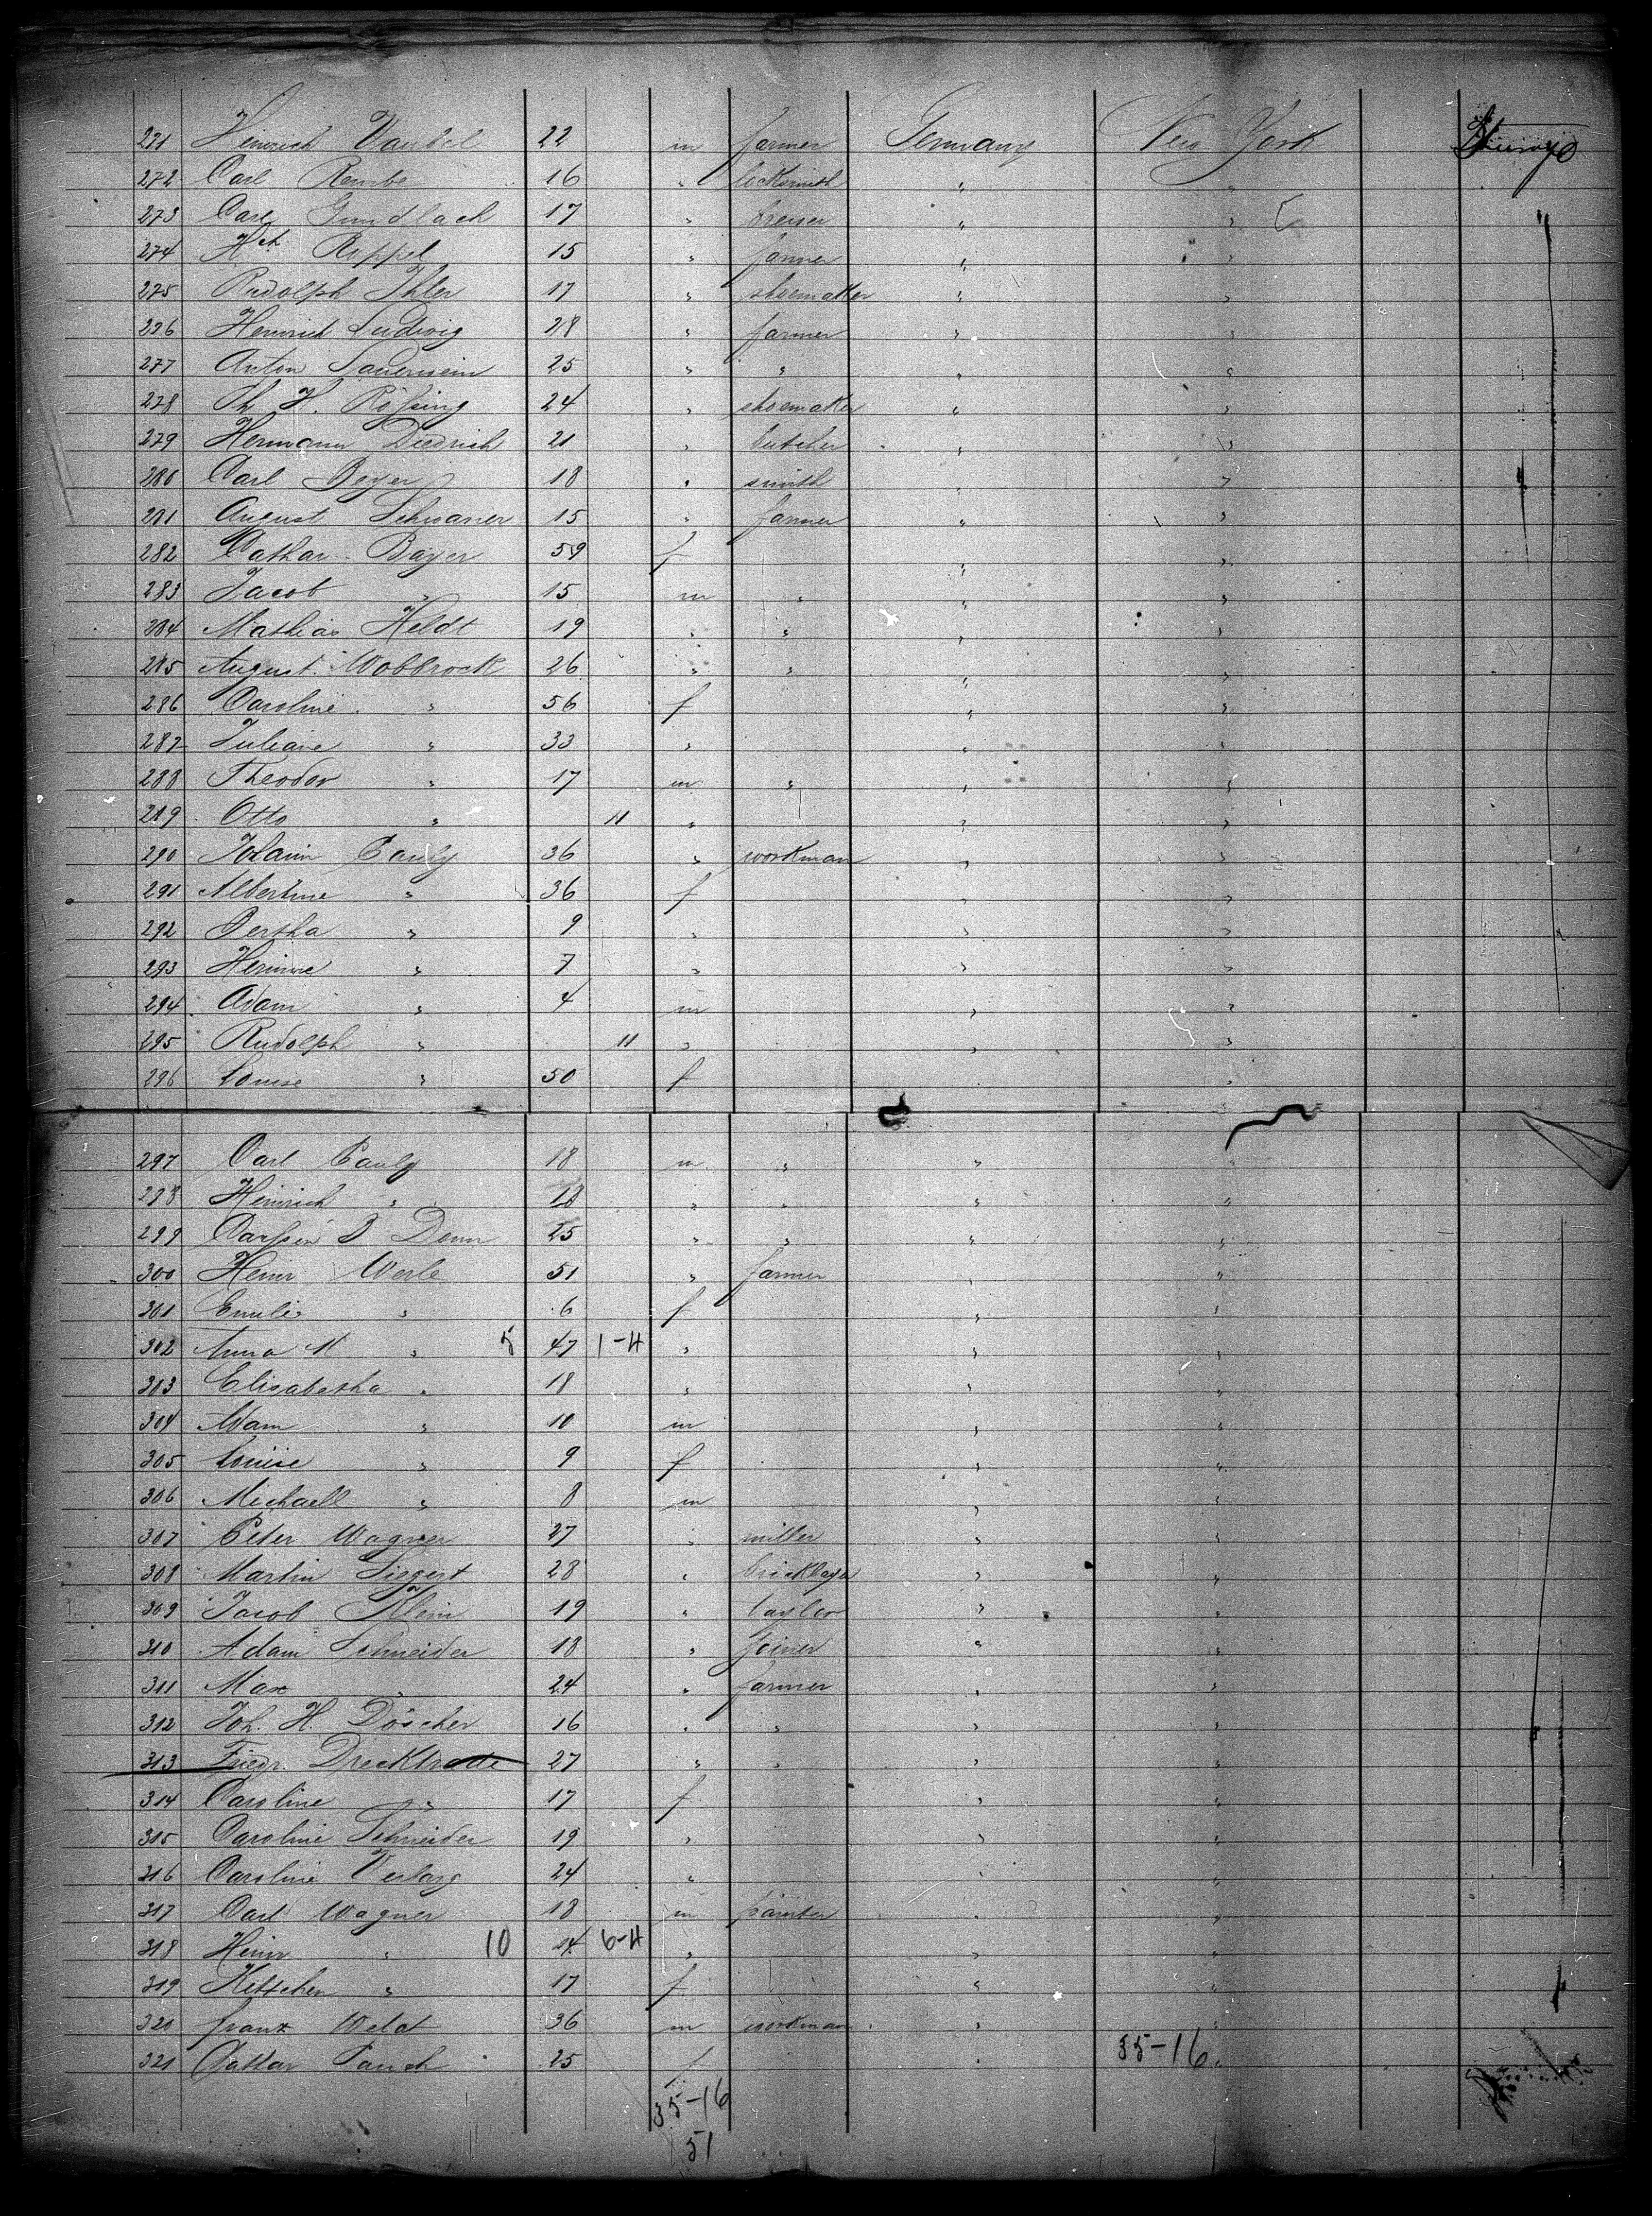 271 Heinrich Vaubel 22 m farmer Germany New York
272 Carl Rembe 16 " locksmith " "
273 Carl Gundlach 17 " brewer " "
274 Hch Roppel 15 " farmer " "
275 Rudolph Ihler 17 " shoemaker " "
276 Heinrich Ludwig 28 " farmer " "
277 Anton Sauerwein 25 " " " "
278 Th. H. Rößing 24 " shoemaker " "
279 Hermann Diedrich 21 " butcher " "
280 Carl Beyer 18 " smith " "
281 August Schwaner 15 " farmer " "
282 Cathar. Bayer 59 f " "
283 Jacob " 15 m " " "
284 Mathias Heldt 19 " " " "
285 August Wobbrock 26 " " " "
286 Caroline " 56 f " "
287 Juliane " 33 " " "
288 Theodor " 17 m " " "
289 Otto " 11 " " "
290 Johann Pauly 36 " workman " "
291 Albertine " 36 f " "
292 Bertha " 9 " " "
293 " 7 " " "
294 Adam " 4 m " "
295 Rudolph " 11 " " "
296 Louise " 50 f " "
297 Carl Pauly 18 m " " "
298 Heinrich " 18 " " " "
299 25 " " " "
300 Heinr Werle 51 " farmer " "
301 Emilie " 6 f " "
302 Anna M " 5 47 1-H " " "
303 Elisabetha " 18 " " "
304 Adam " 10 m " "
305 Louise " 9 f " "
306 Michaell " 8 m " "
307 Peter Wagner 27 " miller " "
308 Martin Siegert 28 " bricklayer " "
309 Jacob Klein 19 " taylor " "
310 Adam Schneider 18 " joiner " "
311 Max " 24 " farmer " "
312 Joh. H. Döscher 16 " " " "
313 Friedr. Drecktrade 27 " " " "
314 Caroline " 17 f " "
315 Caroline Schneider 19 " " "
316 Caroline 24 " " "
317 Carl Wagner 18 m painter " "
318 Heinr " 10 14 6-H " " "
319 Kettchen " 17 f " "
320 Franz Weldt 36 m workman " "
321 25 f " "
35-16
35-16
51